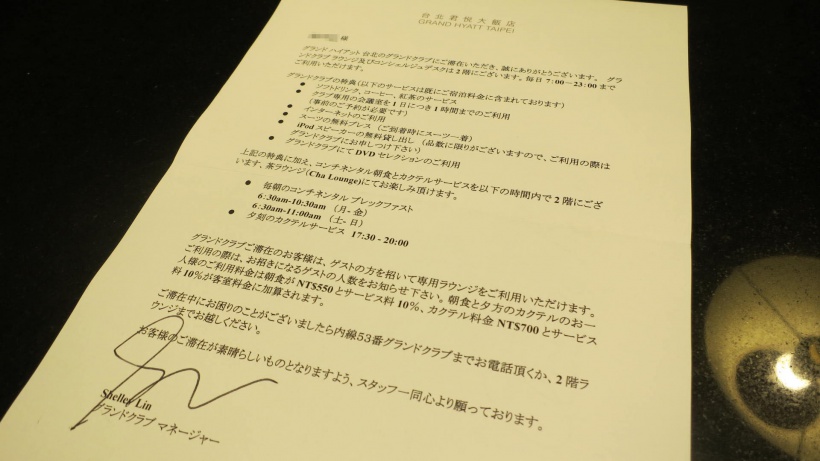 台北君悅大飯店
GRAND HYATT TAIPEI
様
グランド ハイアット 台北のグランドクラブにご滞在いただき、誠にありがとうございます。 グラ
ンドクラブ ラウンジ及びコンシェルジュデスクは 2 階にございます。毎日 7:00―23:00 まで
ご利用いただけます。
グランドクラブの特典（以下のサービスは既にご宿泊料金に含まれております）
● ソフトドリンク、コーヒー、紅茶のサービス
● クラブ専用の会議室を 1 日につき 1 時間までのご利用
（事前のご予約が必要です）
● インターネットのご利用
● スーツの無料プレス （ご到着時にスーツ一着）
● iPod スピーカーの無料貸し出し （品数に限りがございますので、ご利用の際は
グランドクラブにお申しつけ下さい）
● グランドクラブにて DVD セレクションのご利用
上記の特典に加え、コンチネンタル朝食とカクテルサービスを以下の時間内で 2 階にござ
います、茶ラウンジ(Cha Lounge)にてお楽しみ頂けます。
● 毎朝のコンチネンタル ブレックファスト
6:30am-10:30am （月- 金）
6:30am-11:00am （土- 日）
● 夕刻のカクテルサービス 17:30 - 20:00
グランドクラブご滞在のお客様は、ゲストの方を招いて専用ラウンジをご利用いただけます。
ご利用の際は、お招きになるゲストの人数をお知らせ下さい。朝食と夕方のカクテルのお一
人様のご利用料金は朝食が NT$550 とサービス料 10%、カクテル料金 NT$700 とサービス
料 10%が客室料金に加算されます。
ご滞在中にお困りのことがございましたら内線53番グランドクラブまでお電話頂くか、2 階ラ
ウンジまでお越しください。
お客様のご滞在が素晴らしいものとなりますよう、スタッフ一同心より願っております。
Shelley Lin
グランドクラブ マネージャー